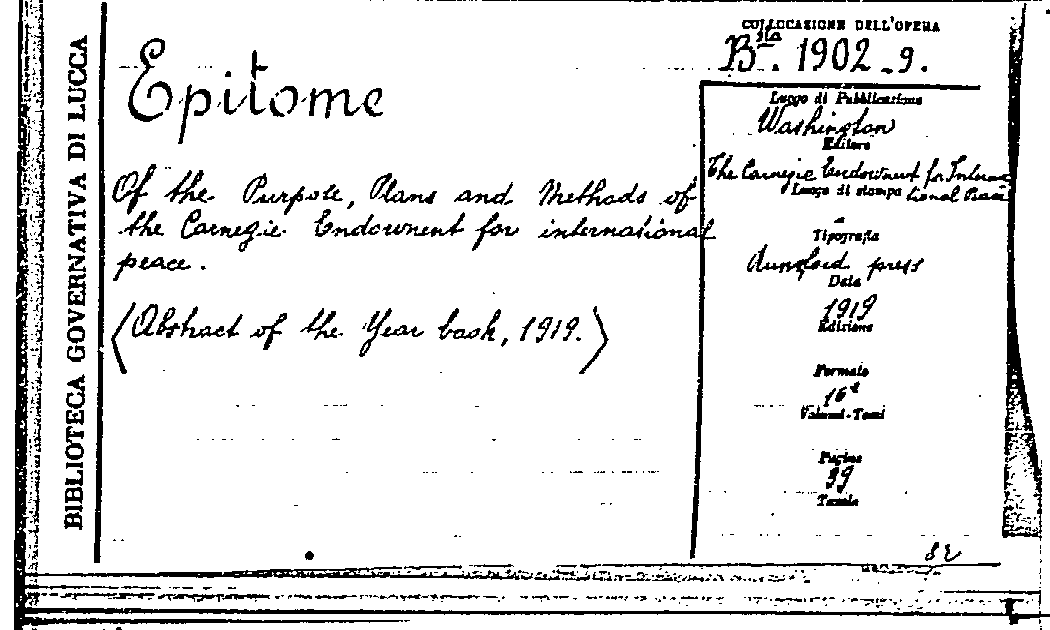 BIBLIOTECA GOVERNATIVA DI LUCCA
Epitome
Of the Purpose, Plans and Methods of
the Carnegie Endownent for international
peace.
(Abstract of the Year book, 1919.)
COLLOCAZIONE DELL'OPERA
Bta. 1902-9.
Luogo di Pubblicazione
Washington
Editore
The Carnegie Endownent for Interna
Luogo di stampa tional Peace
Tipografia
press
Data
1919
Edizione
Formato
16°
Volumi-Tomi
Pagine
39
Tavole